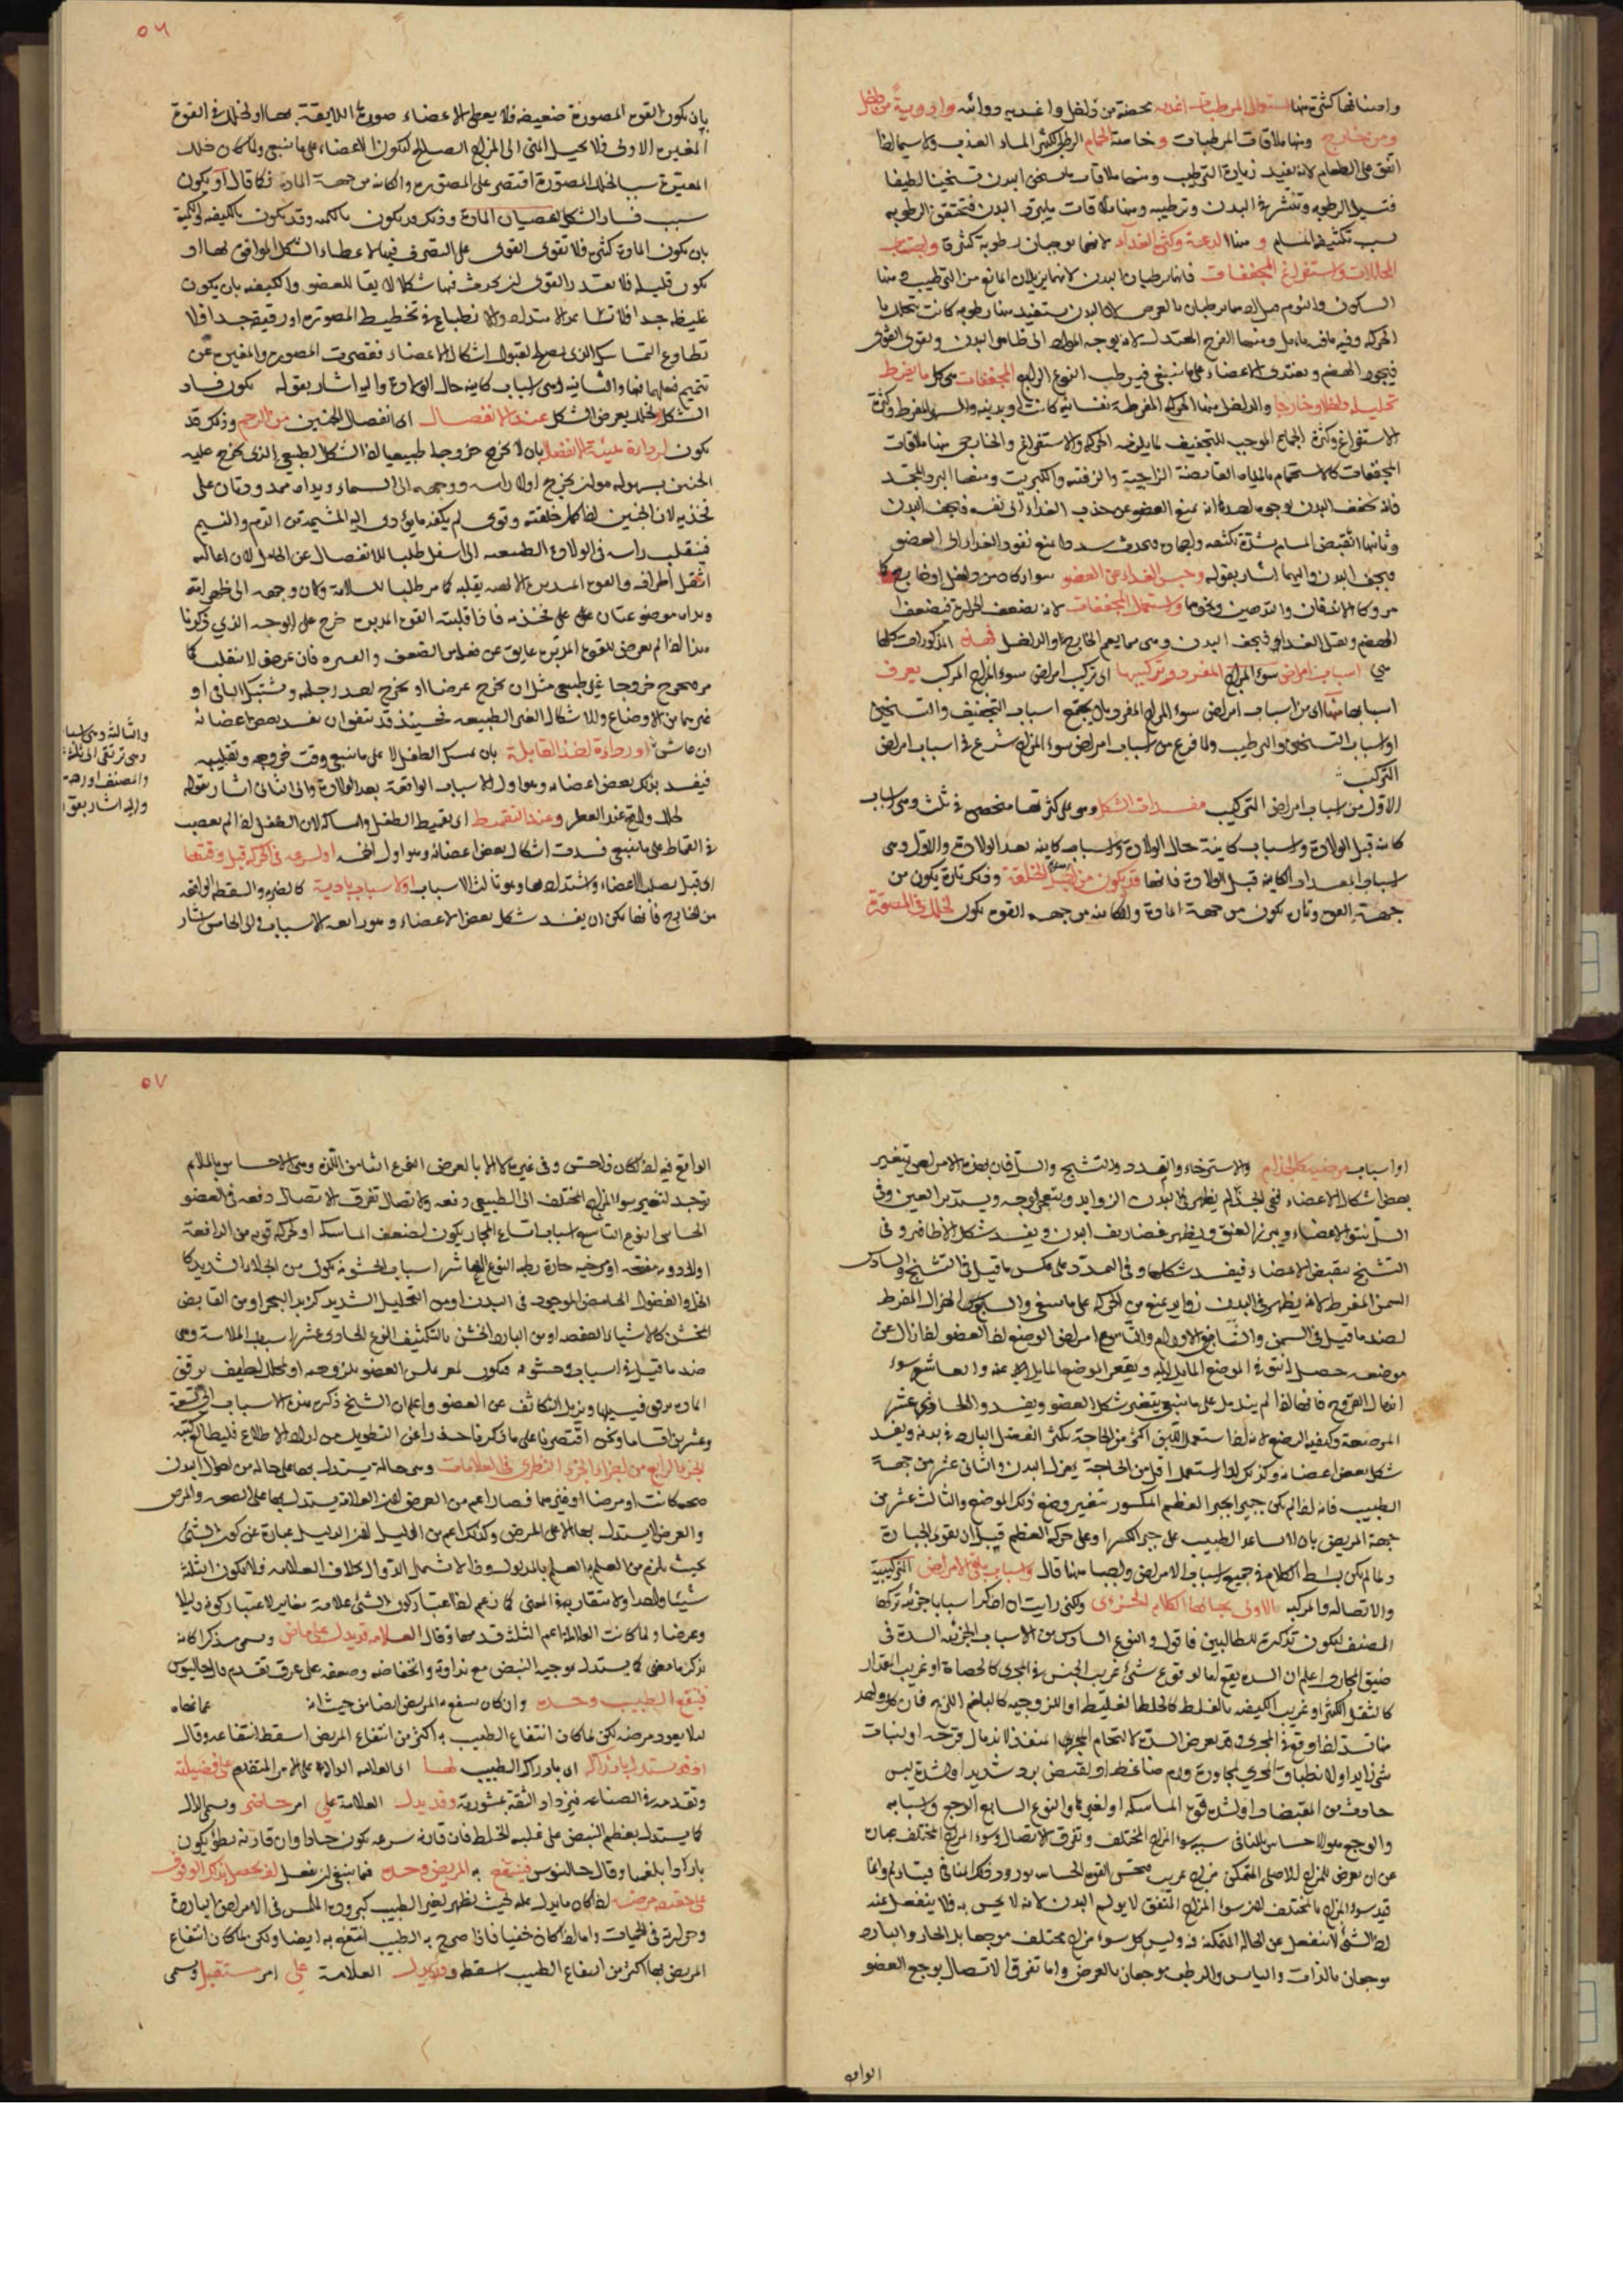 واصنافها كثيرة منها استعمال المرطبات اغذية من داخل وادوية من داخل
ومن خارج ومنها ملاقات المرطبات وخاصة الحمام الرطب الكثير الماء العذب ولا سيما اذا
اتفق على الطعام لانه يفيد زيادة الترطيب ومنها ملاقات ما يسخن البدن تسخينا لطيفا
فتسيل الرطوبة وتنتشر في البدن وترطبه ومنها ملاقات ما يبرد البدن فتحتقن الرطوبة
بسبب تكثيفها المسام ومنها الدعة وكثرة الغذاء لانهما يوجبان رطوبة كثيرة واجتناب
المحللات واستفراغ المجففات فانهما يرطبان البدن لانهما يزيلان المانع من الترطيب ومنها
السكون والنوم
الحركة وفيه ما فيه تامل ومنها الفرح المعتدل لانه يوجه المواد الى ظاهر البدن ويقوي القوى
فيجود الهضم ويغتذي الاعضاء على ما ينبغي فيرطب النوع الرابع المجففات هي كل ما يفرط
تحليله داخلا وخارجا والداخل منها الحركة المفرطة نفسانية كانت او بدنية والسهر المفرط وكثرة
الاستفراغ وكثرة الجماع الموجب للتجفيف والخارجي منها ملاقات
المجففات كالاستحمام بالمياه القابضة الزاجية والزفتية والكبريت ومنها البرد المجمد
فانه يجفف البدن بوجوه احدها انه يمنع العضو عن جذب الغذاء الى نفسه فيجف البدن
وثانيها انقباض المسام بشدة تكثيفه فيحدث سدد مانع نفوذ الغذاء الى العضو
فيجف البدن واليهما اشار بقوله وحبس الغذاء عن العضو سواء كان من داخل او خارج كما
واستعمال المجففات لانه يضعف الحرارة فيضعف
الهضم ويقل الغذاء فيجف البدن وهي مما يعم الخارج والداخل فهذه المذكورات كلها
هي اسباب امراض سوء المزاج المفرد وتركيبها اي تركيب امراض سوء المزاج المركب يعرف
اسبابها منها اي من اسباب امراض سوء المزاج المفرد بان يجتمع اسباب التجفيف والتسخين
او اسباب التسخين والترطيب ولما فرغ من اسباب امراض سوء المزاج شرع في اسباب امراض
التركيب
الاول من اسباب امراض التركيب مفسدات الشكل وهي على كثرتها منحصرة في ثلث وهي اسباب
كائنة قبل الولادة واسباب كائنة حال الولادة واسباب كائنة بعد الولادة والاول وهي
الاسباب المعدة الكائنة قبل الولادة فانها قد يكون من اصل الخلقة وذلك تارة يكون من
جهة القوة وتارة يكون من جهة المادة والكائنة من جهة القوة يكون لخلل في المصورة
٥٦
بان يكون القوة المصورة ضعيفة فلا يعطي الاعضاء صورتها اللايقة بها او لخلل في القوة
المغيرة الاولى فلا يحيل المني الى المزاج الصالح لتكون الاعضاء على ما ينبغي ولما كان خلل
المغيرة سببا لخلل المصورة اقتصر على المصورة والكائنة من جهة المادة فكما قال او يكون
سبب فساد الشكل لعصيان المادة وذلك قد يكون بالكمية وقد يكون بالكيفية والكمية
بان يكون المادة كثيرة فلا تقوى القوى على التصرف فيها لاعطاء الشكل الموافق لها او
تكون قليلة فلا تقدر القوى ان يحدث فيها شكلا لايقا للعضو والكيفية بان يكون
غليظة جدا فلا تنشا للامتداد والانطباع في تخطيط المصورة او رقيقة جدا فلا
تطاوع التماسك الذي يصلح لقبول اشكال الاعضاء فقصرت المصورة والمغيرة عن
تتميم فعلهما فيها والثانية هي اسباب كائنة حال الولادة واليه اشار بقوله يكون فساد
الشكل لخلل يعرض الشكل عند الانفصال اي انفصال الجنين من الرحم وذلك قد
يكون لرداءة هيئة الانفصال بان لا يخرج خروجا طبيعيا اذ الشكل الطبيعي الذي يخرج عليه
الجنين بسهولة هو ان يخرج اولا راسه ووجهه الى السماء ويداه ممدودتان على
فخذيه لان الجنين اذا كمل خلقته وقوي لم يكفه ما يؤدي اليه المشيمة من الدم والنسيم
فينقلب راسه في الولادة الطبيعية الى اسفل طلبا للانفصال عن الحامل لان اعاليه
اثقل اطرافه والقوة المدبرة الالهية يقلبه كما مر طلبا للسلامة وكان وجهه الى ظهر امه
ويداه موضوعتان على فخذيه فاذا قلبته القوة المدبرة خرج على الوجه الذي ذكرنا
هذا اذا لم يعرض للقوة المدبرة عايق عن فعلها من الضعف وغيره فان عرض لا ينقلب كما
مر فيخرج خروجا غير طبيعي مثل ان يخرج عرضا او يخرج احد رجليه ويشتبك الباقي او
غيرهما من الاوضاع والاشكال الغير الطبيعية فحينئذ قد يتفق ان يفسد بعض اعضائه
ان عاش او رداءة اخذ القابلة بان تمسك الطفل لا على ما ينبغي وقت خروجه وتقليبه
فيفسد بذلك بعض اعضائه وهو اول الاسباب الواقعة بعد الولادة والى الثاني اشار بقوله
وعند التقميط اي تقميط الطفل وامساكه لان الطفل اذا لم يعصب
في القماط على ما ينبغي فسدت اشكال بعض اعضائه او لسرعة في الحركة قبل وقتها
اي قبل صلابة الاعضاء واشتدادها وهو ثالث الاسباب او لاسباب بادية كالضربة والسقطة الواقعة
من الخارج فانها يمكن ان يفسد شكل بعض الاعضاء وهو رابعة الاسباب والى الخامس اشار
والثالثة وهي اسباب
وهي ترتقي الى ثلاثة
والمصنف اورد
واليه اشار بقوله
او اسباب مرضية كالجذام والاسترخاء والتمدد والتشنج والسل فان بهذه الامراض يتغير
بعض اشكال الاعضاء ففي الجذام يظهر في البدن الزوايد ويتعجر الوجه ويستدير العين وفي
السل تنتو الاعضاء ويبرز العنق ويظهر غضاريف البدن ويفسد شكل الاظافير وفي
التشنج يتقبض الاعضاء فيفسد شكلها وفي التمدد على عكس ما قيل في التشنج والسادس
السمن المفرط لانه يظهر في البدن زوايد يمنع من الحركة على ما ينبغي والسابع الهزال المفرط
لضد ما قيل في السمن والثامن الاورام والتاسع امراض الوضع اذ العضو اذا زال عن
موضعه حصل النتو في الموضع المايل اليه ويقعر الموضع المايل عنه والعاشر سوء
اندمال القروح فانها اذا لم يندمل على ما ينبغي يتغير شكل العضو ويفسد والحادي عشر
المرضعة وكيفية الرضع لانه اذا استعمل اللبن اكثر من الحاجة يكثر الفضل البارد في بدنه ويفسد
شكل بعض اعضائه وكذلك اذا استعمل اقل من الحاجة يهزل البدن والثاني عشر من جهة
الطبيب فانه اذا لم يكن جبر الجبر العظم المكسور يتغير وضع ذلك الموضع والثالث عشر من
جهة المريض بان لا يساعد الطبيب على جبر الكسر او على حركة العظم قبل ان يقوى الجبارة
ولما لم يكن بسط الكلام في جميع اسباب الامراض واجبا منها قال واسباب باقي الامراض التركيبية
والاتصالية والمركبة الاولى بحالها الكلام الجزوي ولكني رايت ان اذكر اسبابا جزئية تركها
المصنف ليكون تذكرة للطالبين فاقول والنوع السادس من الاسباب الجزئية السدة في
ضيق المجاري اعلم ان السدة يقع اما لوقوع شيء غريب الجنس في المجرى كالحصاة او غريب المقدار
كالثفل الكثير او غريب الكيفية بالغلظ كالخلط الغليظ او اللزوجة كالبلغم اللزج فان كل واحد
منها تسد اذا وقع في المجرى وقد يعرض السدة لالتحام المجرى المنفذ لاندمال قرحة او لنبات
شيء زايد او لانطباق المجرى لمجاورة ورم ضاغط او لقبض برد شديد او لشدة يبس
حادث من المقبضات او لشدة قوة الماسكة او لغيرها والنوع السابع الوجع واسبابه
والوجع هو الاحساس بالمنافي سببه سوء المزاج المختلف وتفرق الاتصال وسوء المزاج المختلف عبارة
عن ان يعرض للمزاج الاصلي المتمكن مزاج غريب فيحس القوة الحساسة بورود ذلك المنافي فيتالم وانما
قيد سوء المزاج بالمختلف لان سوء المزاج المتفق لا يولم البدن لانه لا يحس به فلا ينفعل عنه
اذ الشيء لا ينفعل عن الحالة المتمكنة فيه وليس كل سوء مزاج مختلف موجعا بل الحار والبارد
موجعان بالذات واليابس والرطب موجعان بالعرض واما تفرق الاتصال يوجع العضو
الواقع
٥٧
الواقع فيه اذا كان ذا حس وفي غيره بالعرض النوع الثامن اللذة وهي الاحساس بالملايم
توجد لتغير سوء المزاج المختلف الى الطبيعي دفعة ولاتصال تفرق الاتصال دفعة في العضو
الحاس النوع التاسع اسباب اتساع المجاري يكون لضعف الماسكة او لحركة قوية من الدافعة
او لادوية مفتحة او مرخية حارة رطبة النوع العاشر اسباب الخشونة تكون من الجلاء الشديد كا
لخل والفضول الحامض الموجود في البدن او من التحليل الشديد كزبد البحر او من القابض
المخشن كالاشياء العفصة او من البارد المخشن بالتكثيف النوع الحادي عشر اسباب الملاسة وهي
ضد ما قيل في اسباب الخشونة فيكون لمغر يملس العضو بلزوجته او لمحلل لطيف يرقق
المادة فيسيلها ويزيل التكاثف عن العضو واعلم ان الشيخ ذكر من هذه الاسباب الى تسعة
وعشرين اقساما ونحن اقتصرنا على ما ذكرنا حذرا عن التطويل من اراد الاطلاع فليطالع كتبه
الجزء الرابع من اجزاء الجزء النظري في العلامات وهي حالة يستدل بها على حالة من احوال البدن
صحة كانت او مرضا او غيرهما فصار اعم من العرض لان العلامة يستدل بها على الصحة والمرض
والعرض لا يستدل به الا على المرض وكذلك اعم من الدليل لان الدليل عبارة عن كون الشيء
بحيث يلزم من العلم به العلم بالمدلول بخلاف العلامة فلا تكون الثلثة
شيئا واحدا ولا متقاربة في المعنى كما زعم اذ اعتبار كون الشيء علامة مغاير لاعتبار كونه دليلا
وعرضا ولما كانت العلامة اعم الثلثة قدمها وقال العلامة قد يدل على ماض ويسمى مذكرا كانه
يذكر ما مضى كما يستدل بوجية النبض مع نداوة وانخفاضه وضعفه على عرق تقدم قال جالينوس
فينفع الطبيب وحده وان كان ينتفع به المريض ايضا من حيث انه عما نهاه
لئلا يعود مرضه لكن لما كان انتفاع الطبيب به اكثر من انتفاع المريض اسقط انتفاعه وقال
اذ قد يستدل بادراكه اي بادراك الطبيب لها اي العلامة الدالة على الامر المتقدم على فضيلته
وتقدمه في الصناعة فيزداد الثقة بمشورته وقد يدل العلامة على امر حاضر ويسمى دالا
كما يستدل بعظم النبض على غلبة الخلط فان قارنه سرعة يكون حارا وان قارنه بطوء يكون
باردا بلغميا وقال جالينوس فينتفع به المريض وحده فيما ينبغي ان يفعل اذ يحصل بذلك الوقوف
على حقيقة مرضه اذا كان ما يدل عليه بحيث يظهر لغير الطبيب كبرودة الملمس في الامراض الباردة
وحرارته في الحميات واما اذا كان خفيا فاذا صرح به الطبيب انتفع به ايضا ولكن لما كان انتفاع
المريض بها اكثر من انتفاع الطبيب اسقطه وقد يدل العلامة على امر مستقبل ويسمى